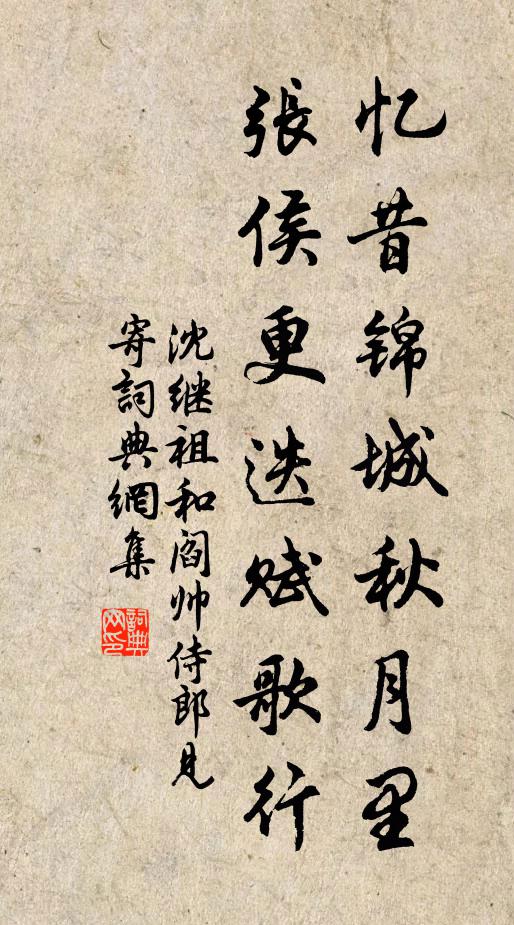 忆昔锦城秋月里
張侯更迭赋歌行
沈继祖和阎帅侍郎見
寄詞典網集
詞典网印